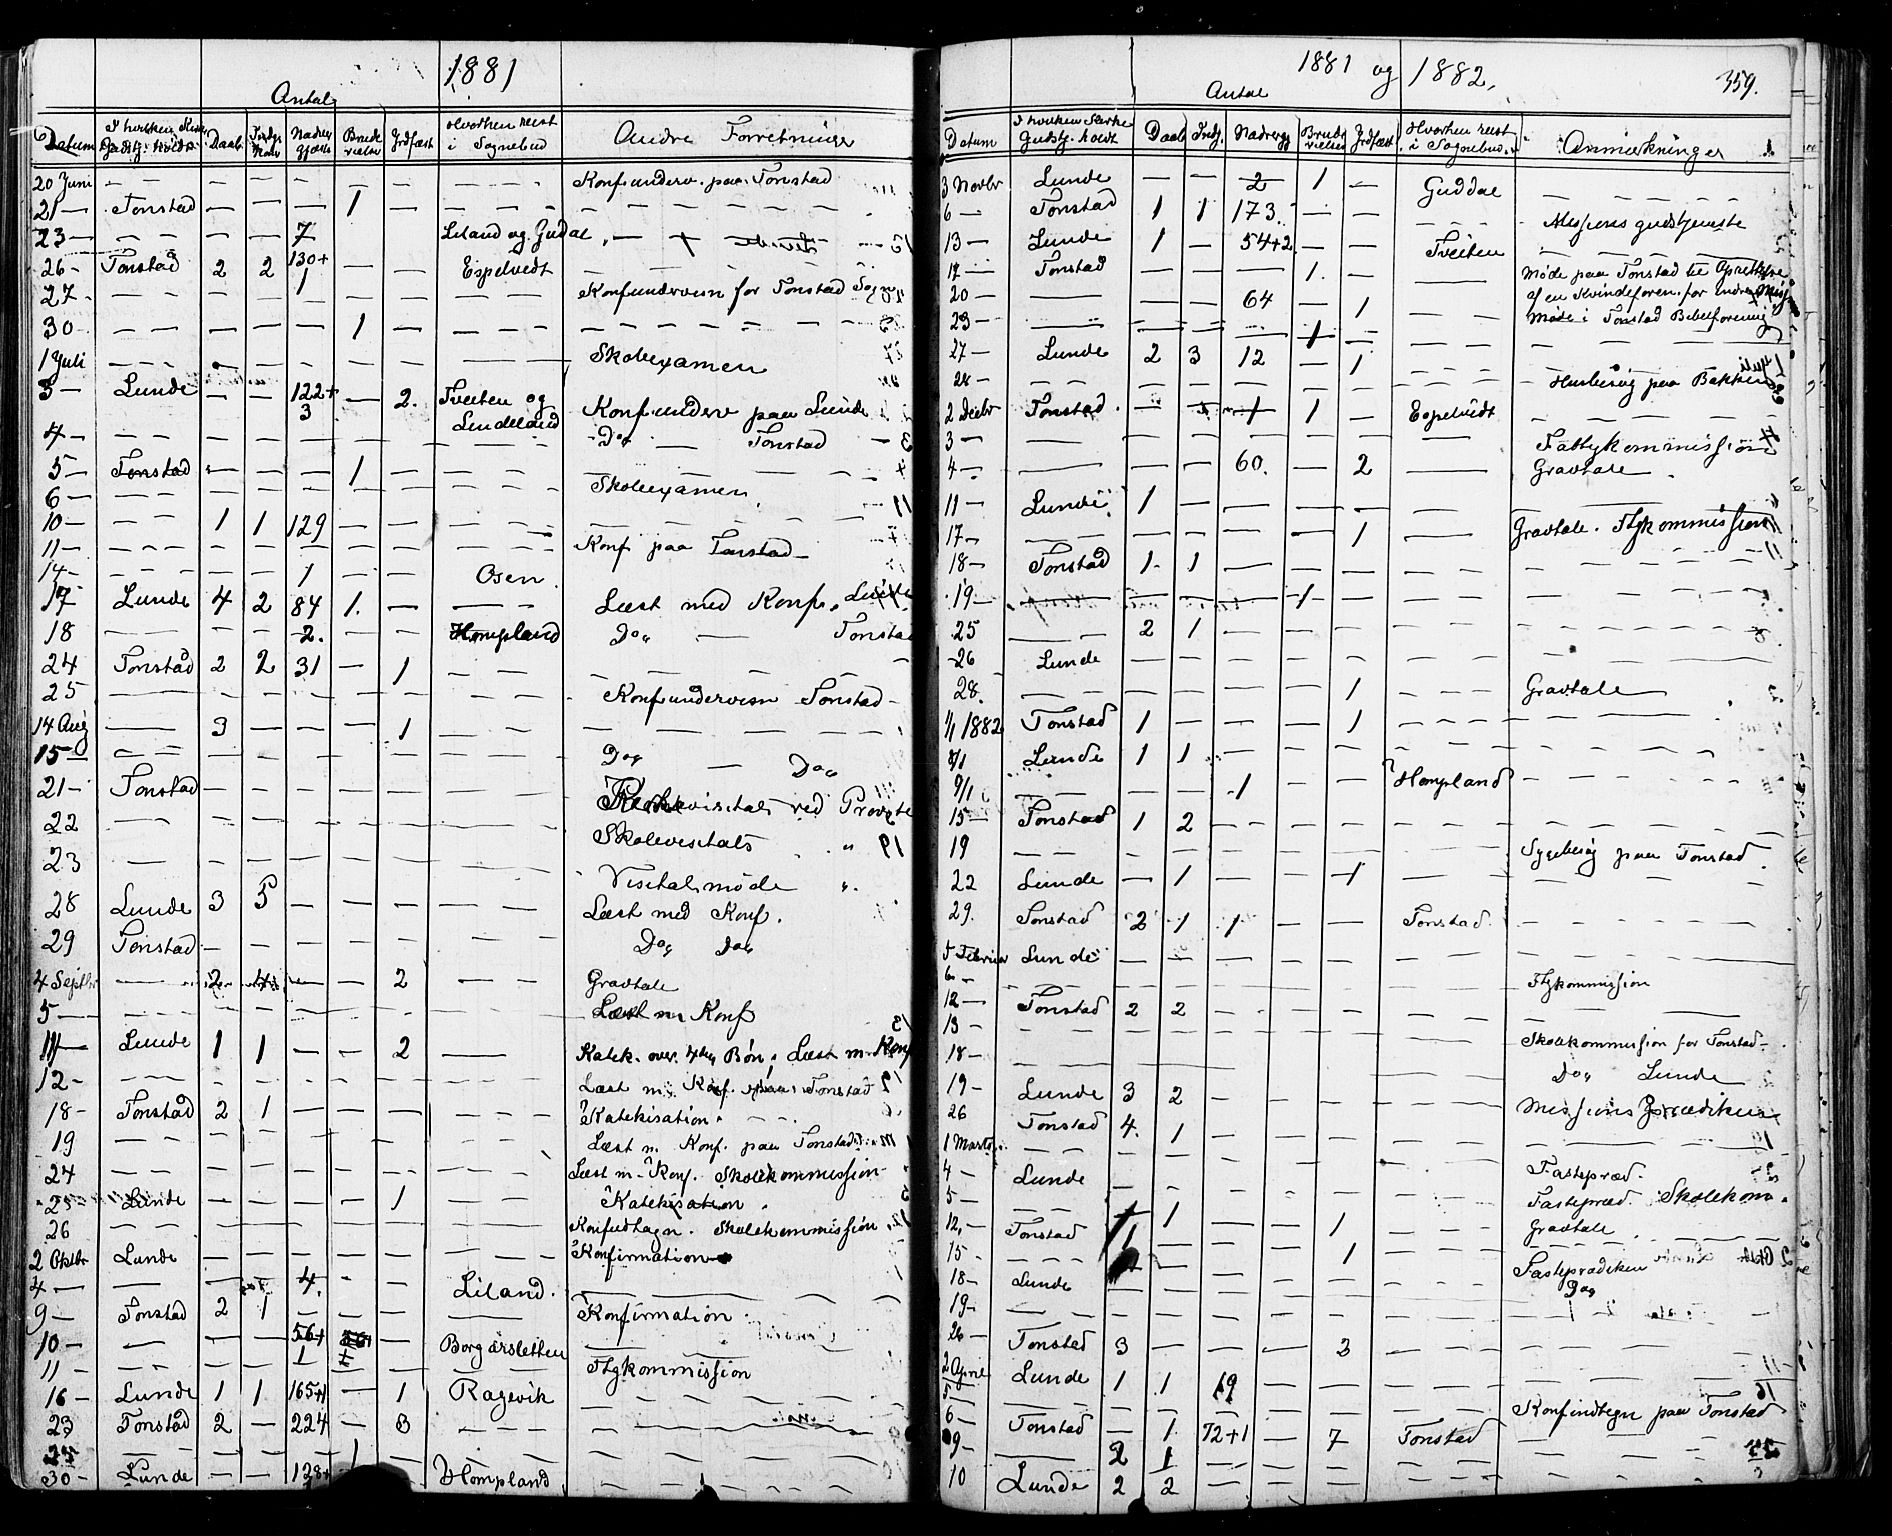 1881
Antal
Datum | I hvilken Kirke Gudstj. holdt | Daab | Indg. Kone | Nadver gjæste | Brude vielse | Jrdfæst | Hvorhen reist i Sognebud | Andre Forretninger
20 Juni — — — — — — — Konfunderv. paa Tonstad
21 — Tonstad — — — 1 — — —
23 — — — — 7 Liland og Gudal
26 - Tonstad 2 2 130+1 — — Espelvedt —
27 - — — — — Konfundervisn for Tonstad Sogn
30 - — — — — 1 — — —
1 Juli — — — — — — — Skoleexamen
3 — Lunde — — 122+3 — 2. Tveiten og Lindeland Konfunderv paa Lunde
4 — — — Do — Tonstad
5 — Tonstad — — — 1 — — —
6 — — — — Skoleexamen
10 — — — 1 1 129 — — — —
11 — — — — Konf paa Tonstad —
14 — — — — 1 — — Osen.
17 - Lunde 4 2 84 1. — — Læst med Konf. Lunde
18 — — — 2. — — Hompland Do — Tonstad
24 Tonstad 2 2 31 — 1 — —
25 — — — — Konfundervisn Tonstad —
14 Aug — 3 — — — 1 — —
15 — — — Do — Do
21 - Tonstad — — — — — — visitats ved Provste
22 — — — Skolevisitats "
23 — Visitatsmøde "
28 Lunde 3 5 — — — — Læst med Konf.
29 Tonstad — — — — — — Do Do
4 Septbr — 2 4 — — 2 — Gravtale
5 — — — — Læst m Konf
11 — Lunde 1 1 — — 2 — Katek. over 4de Bøn. Læst m. Konf
12 - — — — Læst m. Konf. paa Tonstad
18 - Tonstad 2 1 — — — — Katekisation.
19 — — — Læst m. Konf. paa Tonstad
24 — — — Læst m. Konf. Skolekommission
25 - Lunde — — — — 1 — Katekisation.
26 — — — Skolekommission
2 Oktbr Lunde — — — — Konfirmation
4 — — — — 4. — — Liland.
9 — Tonstad 2 1 — — — — Konfirmation
10 - — — — 56+1 — Borgarsletten —
11 - — — — Ftgkommission
16 - Lunde 1 1 165+1 — 1 Ragevik —
23 Tonstad 2 — 224 — 3 — —
25 — — — — 1 — —
30 - Lunde — — 128+ Hompland —
1881 og 1882,
359.
Antal
Datum | I hvilken Kirke Gudstj. holdt | Daab | Indg. | Nadverg | Brude vielser | Jrdfæst | Hvorhen reist i Sognebud | Anmærkninger
3 Novbr Lunde — — 2 1 — Guddal —
6 — Tonstad 1 1 173. — — — Missions gudstjeneste
13 — Lunde 1 — 54+2 — — Tveiten —
17 — Tonstad — — — 1. — Møde paa Tonstad til Oprettelse
20 — — — — 64 — 1 — af en Kvindeforen. for Indre Miss
23 — — — — 1 — — Møde i Tonstad Bibelforening
27 — Lunde 2 3 12 — 1 — —
28 — — — — Husbesøg paa Bakken
2 Decbr Tonstad — — 1 1 — Espelvidt —
3 — — — — Fattykommission
4 — — — — 60. — 2 — Gravtale
11 — Lunde 1 — — — — — —
17 — — — — 1 — Gravtale. Ftgkommission
18 — Tonstad 1 1 — — — — —
19 — — — — — 1 — —
25 — — 2 1 — — — — —
26 Lunde — — — — — — —
28. — — — — — 1 — Gravtale
1/1 1882 Tonstad 1 — — — 1 — —
8/1 Lunde 1 1 — — — — —
9/1 — — — — 1 — — Hompland —
15 — Tonstad 1 2 — — — — —
19 — — — — Sygebesøg paa Tonstad.
22 Lunde — 1 — — 1 — —
29. Tonstad 2 1 1 — — Tonstad —
5 Februar Lunde — — — — — —
6 — — — — Ftgkommission
12 — Tonstad 2 2 — — — — —
13 - — — — Skolekommission for Tonstad
18 - — — — Do Lunde
19 - Lunde 3 2 — — — — Missions Prædiken
26 Tonstad 4. 1 — — — — —
1 Marts — — — Fastepræd.
4 — Lunde — — —
5 — — — — Fastepræd. Skolekom.
12. - Tonstad 1 1 — — 1 — Gravtale
15 - — — — 1 — Fasteprædiken
18 - Lunde — — — Do
19 - — — —
26 - Tonstad 3 — — — 3 — —
2 April Lunde 1 1 19 — — — —
5 — — — —
6 — — — — Konfindtegn paa Tonstad
9 — Tonstad — 1 72+1 — 7 Tonstad —
— 2 1 — — — —
10 Lunde 2 2 — — — — —